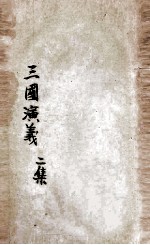 三國演義 二集